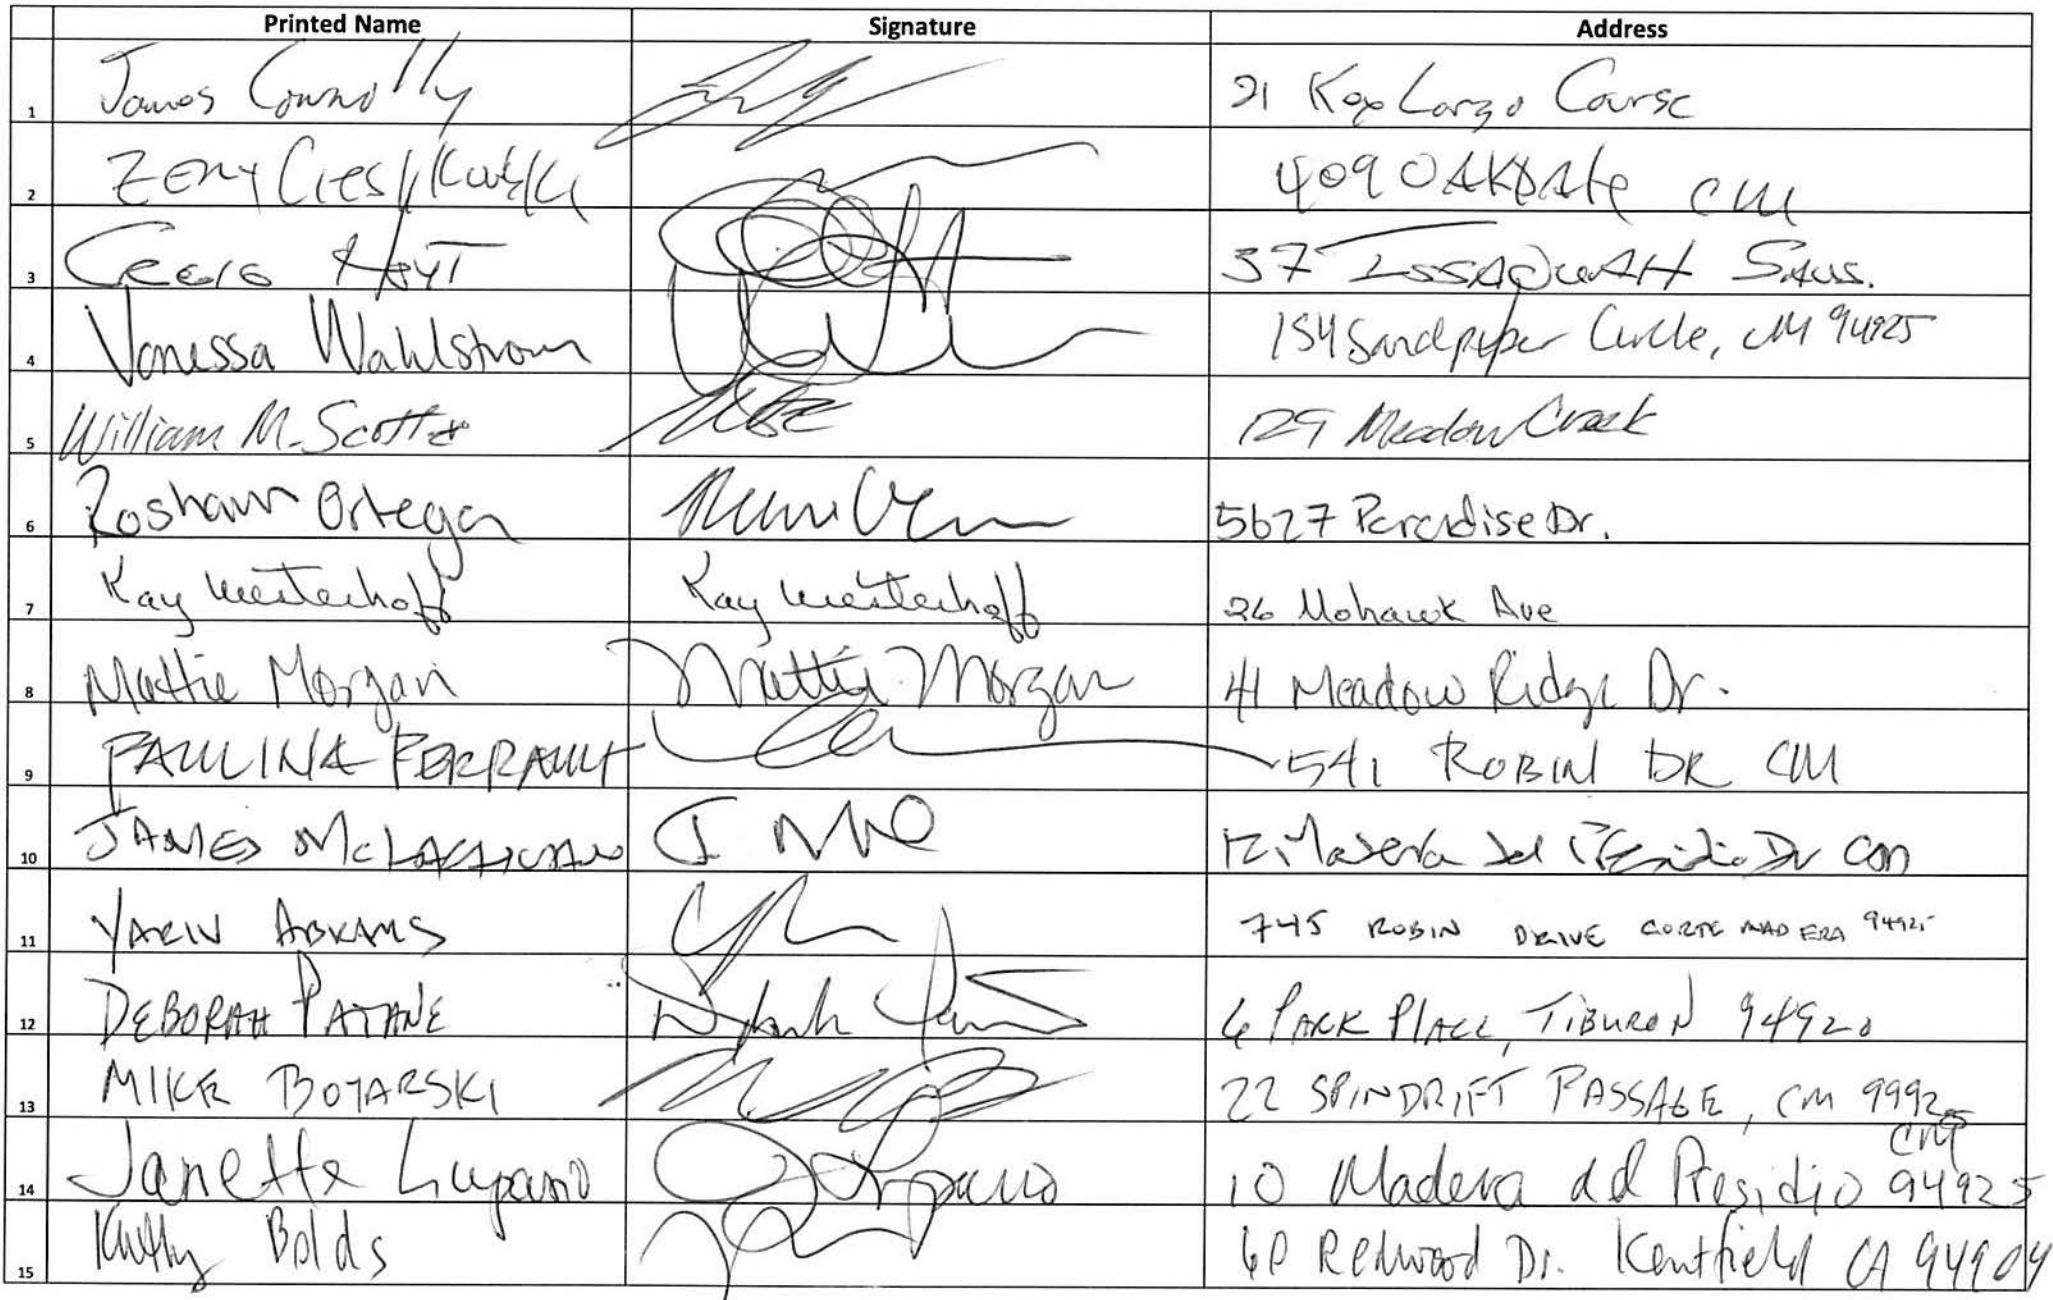 Printed Name Signature Address
1 James Connolly 21 Key Largo Course
2 409 OAKDALE CM
3 CREIG HOYT 37 ISSAQUAH SAUS.
4 Vanessa Wahlstrom 154 Sandpiper Circle, CM 94925
5 William M. Scott 129 Meadow Creek
6 Roshawn Ortega 5627 Paradise Dr.
7 Kay Westerhoff Kay Westerhoff 26 Mohawk Ave
8 Mattie Morgan Mattie Morgan 41 Meadow Ridge Dr.
9 PAULINA PERRAULT 541 ROBIN DR CM
10 JAMES McLACHLAN 12 Madera del Presidio Dr
11 YARIV ABRAMS 745 ROBIN DRIVE CORTE MADERA 94925
12 DEBORAH PATANE 6 PARK PLACE, TIBURON 94920
13 MIKE BOJARSKI 22 SPINDRIFT PASSAGE, CM 99925
14 Janette Lupano 10 Madera del Presidio CM 94925
15 Kathy Bolds 60 Redwood Dr. Kentfield CA 94904